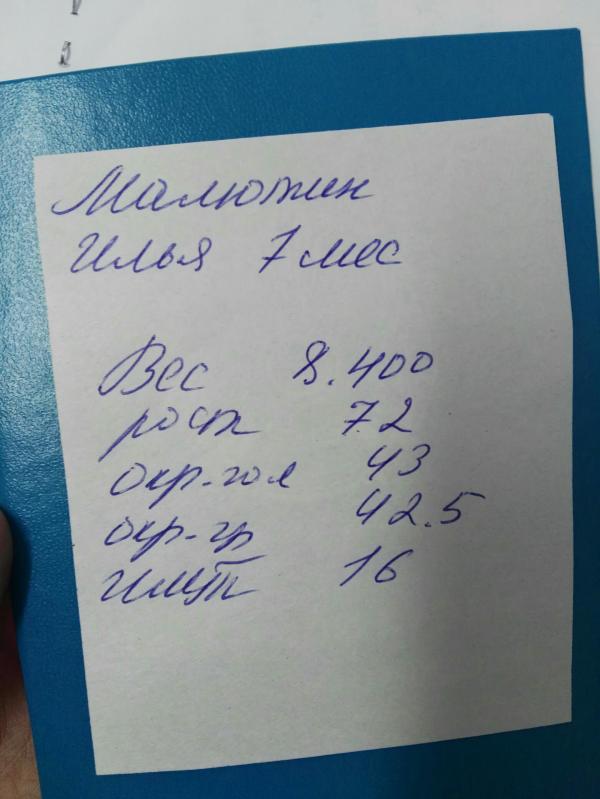 Малютин
Илья 7 мес
Вес 8.400
рост 72
окр-гол 43
окр-гр 42.5
ИМТ 16